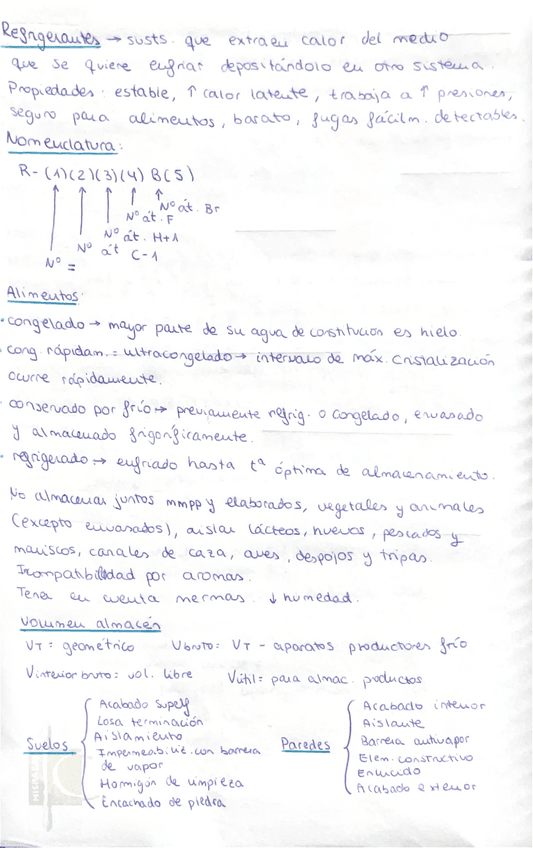 Refrigerantes → susts. que extraen calor del medio
que se quiere enfriar depositándolo en otro sistema.
Propiedades: estable, ↑ calor latente, trabaja a ↑ presiones,
seguro para alimentos, barato, fugas fácilm. detectables.
Nomenclatura:
R-(1)(2)(3)(4) B(5)
Nº át. Br
Nº át. F
Nº át. H+1
Nº át C-1
Nº =
Alimentos:
• congelado → mayor parte de su agua de constitución es hielo.
• cong. rápidam. = ultracongelado → intervalo de máx. cristalización
ocurre rápidamente.
• conservado por frío → previamente refrig. o congelado, envasado
y almacenado frigoríficamente.
• refrigerado → enfriado hasta tª óptima de almacenamiento.
No almacenar juntos mmpp y elaborados, vegetales y animales
(excepto envasados), aislar lácteos, huevos, pescados y
mariscos, canales de caza, aves, despojos y tripas.
Incompatibilidad por aromas.
Tener en cuenta mermas. ↓ humedad.
Volumen almacén
VT = geométrico Vbruto: VT - aparatos productores frío
Vinterior bruto: vol. libre Vútil: para almac. productos
Suelos
Acabado superf
Losa terminación
Aislamiento
con barrera
de vapor
Hormigón de limpieza
Encachado de piedra
Paredes
Acabado interior
Aislante
Barrera antivapor
Elem. constructivo
Enlucido
Acabado exterior